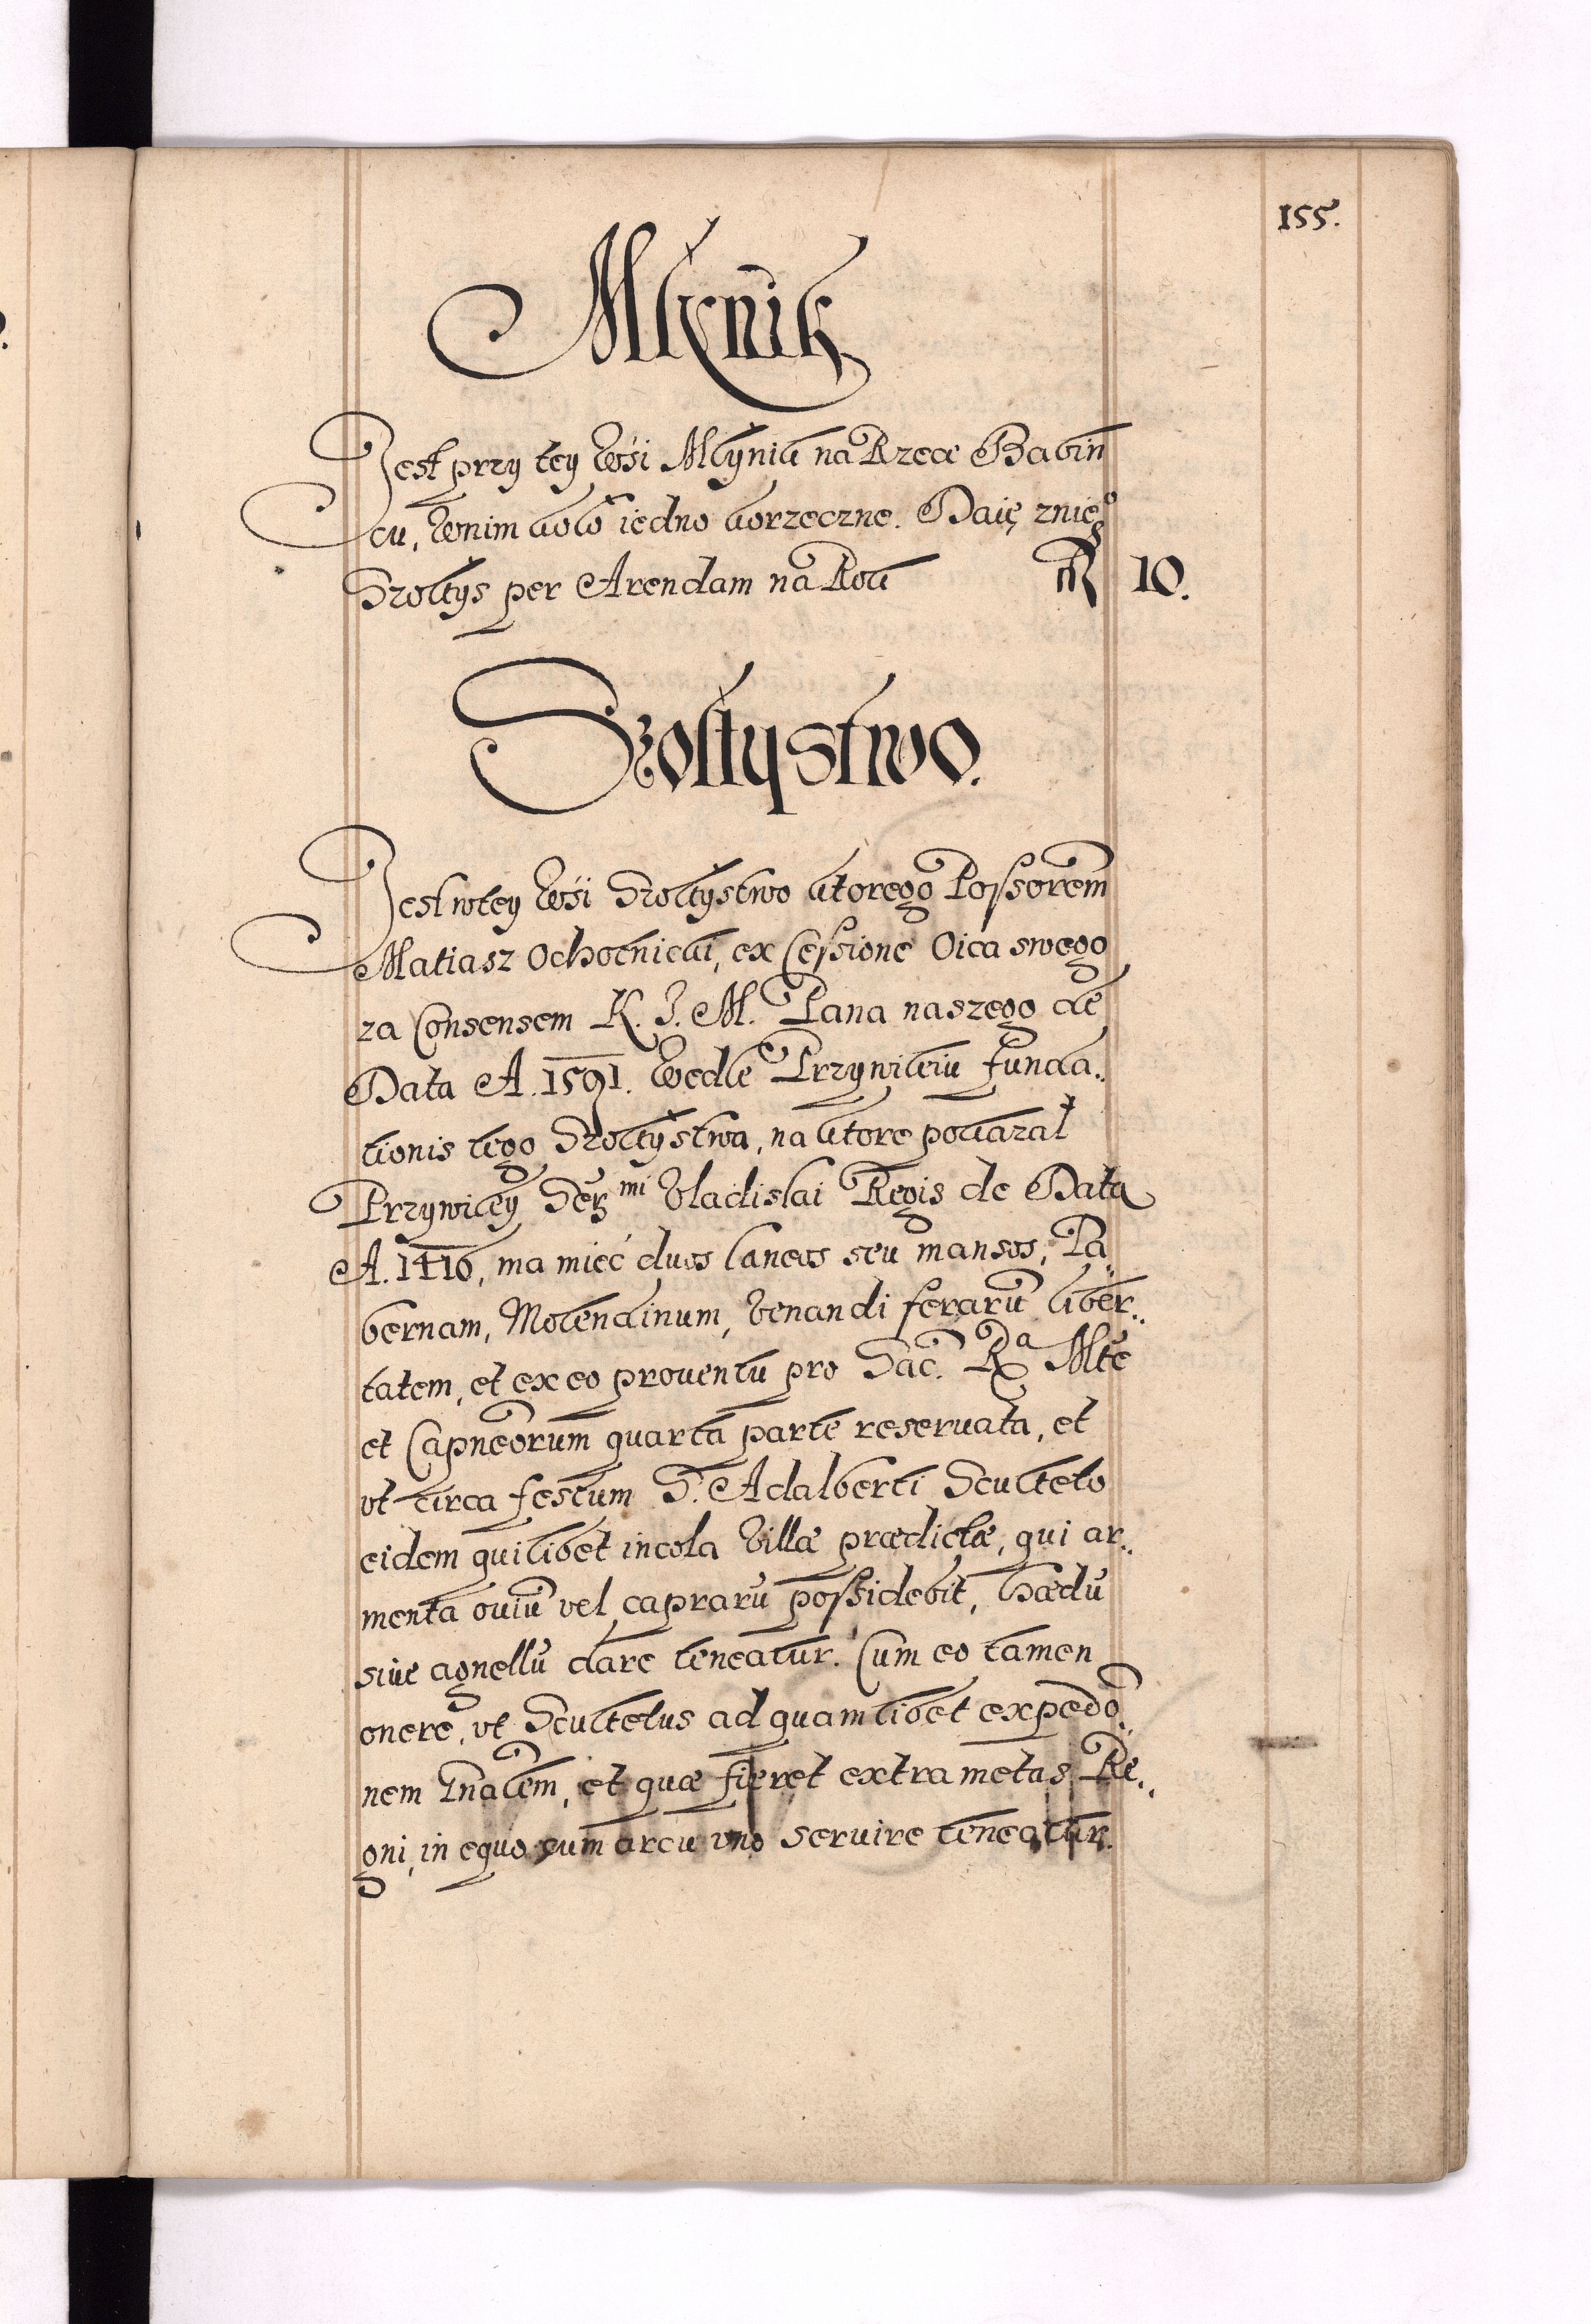 155.
Młynik
Jest przy tey Wsi Młynik na Rzece Babin
cu, w nim koło iedno korzeczne. Daię znieg°
Szołtys per Arendam na Rok 10.
Szołtystwo.
Jest w tey Wsi Szołtystwo ktorego Possorem
Matiasz Ochotnicki, ex Cessione Oica swego
za Consensem K. J. M. Pana naszego de
Data A. 1591. Wedle Przywileiu funda„
tionis tego Szołtystwa, na ktore pokazał
Przywiley Ser mi Vladislai Regis de Data
A. 1416, ma mieć duos laneos seu mansos, Ta„
bernam, Molendinum, Venandi ferarū liber„
tatem, et ex eo prouentu pro Sac. Ra Mte
et Capneorum quarta parte reseruata, et
vt circa festum S. Adalberti Sculteto
eidem quilibet incola Villæ prædictæ, qui ar„
menta ouiū vel caprarū possidebit, hædū
siue agnellū dare teneatur. Cum eo tamen
onere, vt Scultetus ad quamlibet expedo„
nem gnalem, et quæ fieret extra metas Re„
gni, in equo cum arcu vno seruire teneatur.